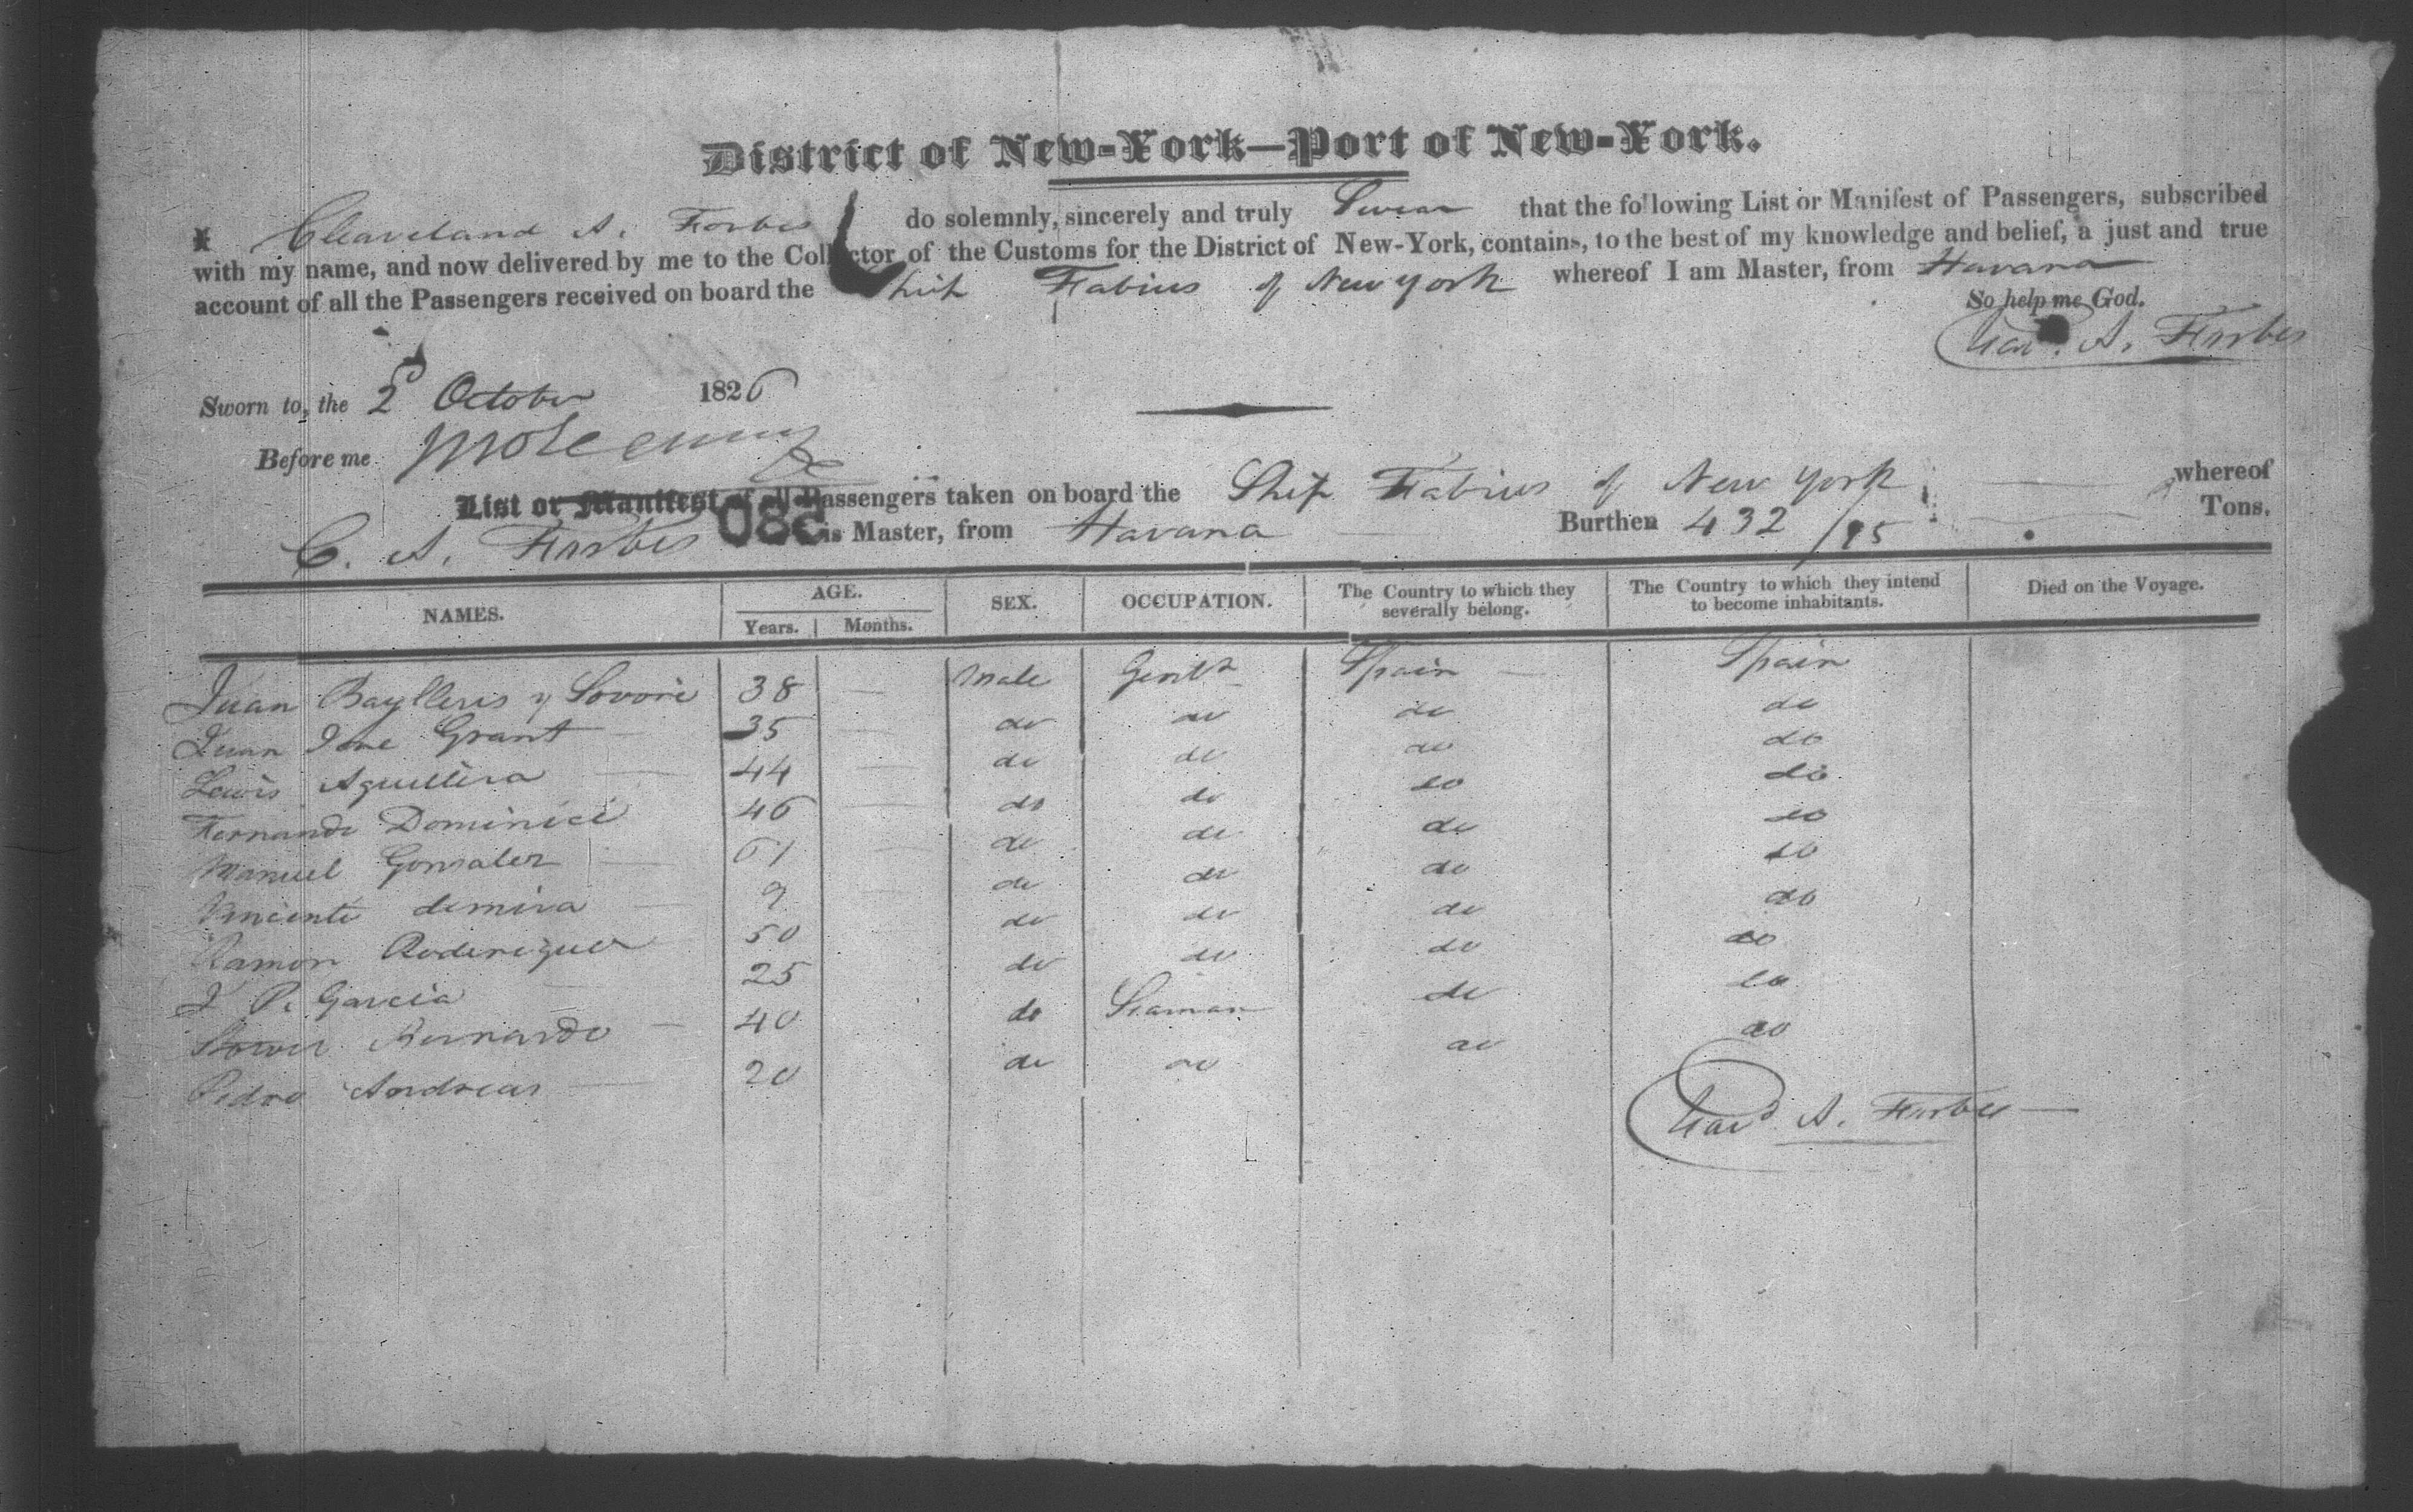 District of New-York—Port of New-York.
I Cleaveland A. Forbes do solemnly, sincerely and truly Swear that the following List or Manifest of Passengers, subscribed
with my name, and now delivered by me to the Collector of the Customs for the District of New-York, contains, to the best of my knowledge and belief, a just and true
account of all the Passengers received on board the Ship Fabius of New York whereof I am Master, from Havana
So help me God.
Clead. A. Forbes
Sworn to, the 2d October 1826
Before me
List or Manifest of all Passengers taken on board the Ship Fabius of New York whereof
C. A. Forbes 080 is Master, from Havana Burthen 432 /95 Tons.
NAMES. AGE. Years. Months. SEX. OCCUPATION. The Country to which they severally belong. The Country to which they intend to become inhabitants. Died on the Voyage.
Juan Baylleris y 38 Male Gentn Spain Spain
Juan Jose Grant 35 do do do do
Lewis Aguillera 44 do do do do
Fernando Dominici 46 do do do do
Manuel Gonzalez 61 do do do do
Vincente demira 9 do do do do
Ramon Roderiguez 50 do do do do
J P. Garcia 25 do do do do
Bernardo 40 do Seaman do do
Pedro Andreas 20 do do do do
Clead. A. Forbes